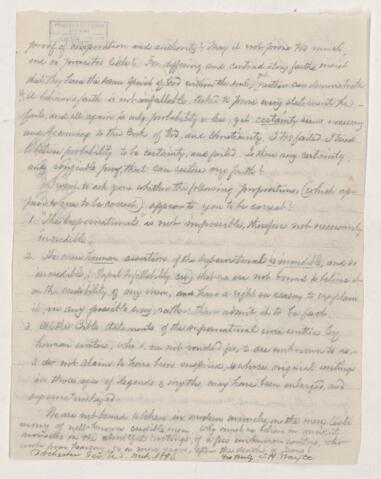 proof of inspiration and authority? May it not prove too much,
and so prove too little? For differing and contradictory faiths insist
that they have the same Spirit of God within the soul, yet neither can demonstrate
it. Adhering faith is not infallible. Asked to prove every statement he
fails, and all again is only probability or less, yet certainty is so necessary
and according to the Book of God, and Christianity, I too failed. I tried
to believe probability to be certainty, and failed. Is there any certainty,
any originable proof, that can restore my faith?
I wish to ask you whether the following propositions (which ap-
peared to me to be correct) appear to you to be correct:
1. The supernatural is not impossible, therefore not necessarily
incredible.
2. The mere human assertion of the supernatural is incredible, and so
incredible, that we are not bound to believe it
on the credibility of any men, and have a right in reason to explain
it in any possible way, rather than admit it to be fact.
3. All the Bible statements of the supernatural were written by
human writers, who 1. are not vouched for, 2. are unknown to us,
3. do not claim to have been inspired, 4. whose original writings
in those ages of legends & myths may have been enlarged, and
supernaturalized.
We are not bound to believe in modern miracles, on the mere testi-
mony of well-known credible men. Why must we believe in ancient
miracles on the writings of a few unknown writers, who
wrote from or more years, after the death of Jesus?
Dorchester Mass.